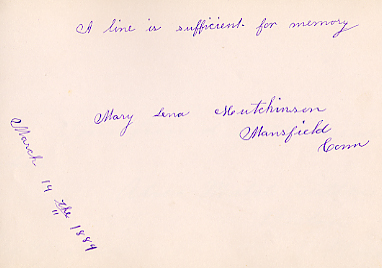 A line is sufficient for memory
Mary Lena Hutchinson
Mansfield
Conn
March 14 the 1884